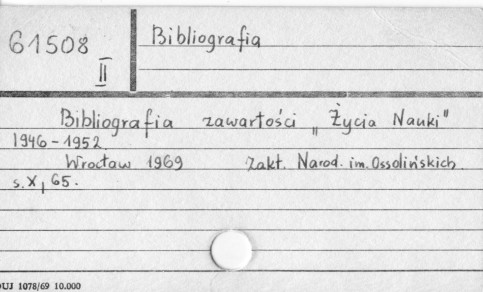 61508
II
Bibliografia
Bibliografia zawartości „Życia Nauki"
1946-1952
Wrocław 1969 Zakł. Narod. im. Ossolińskich
s. X, 65.
DUJ 1078/69 10.000